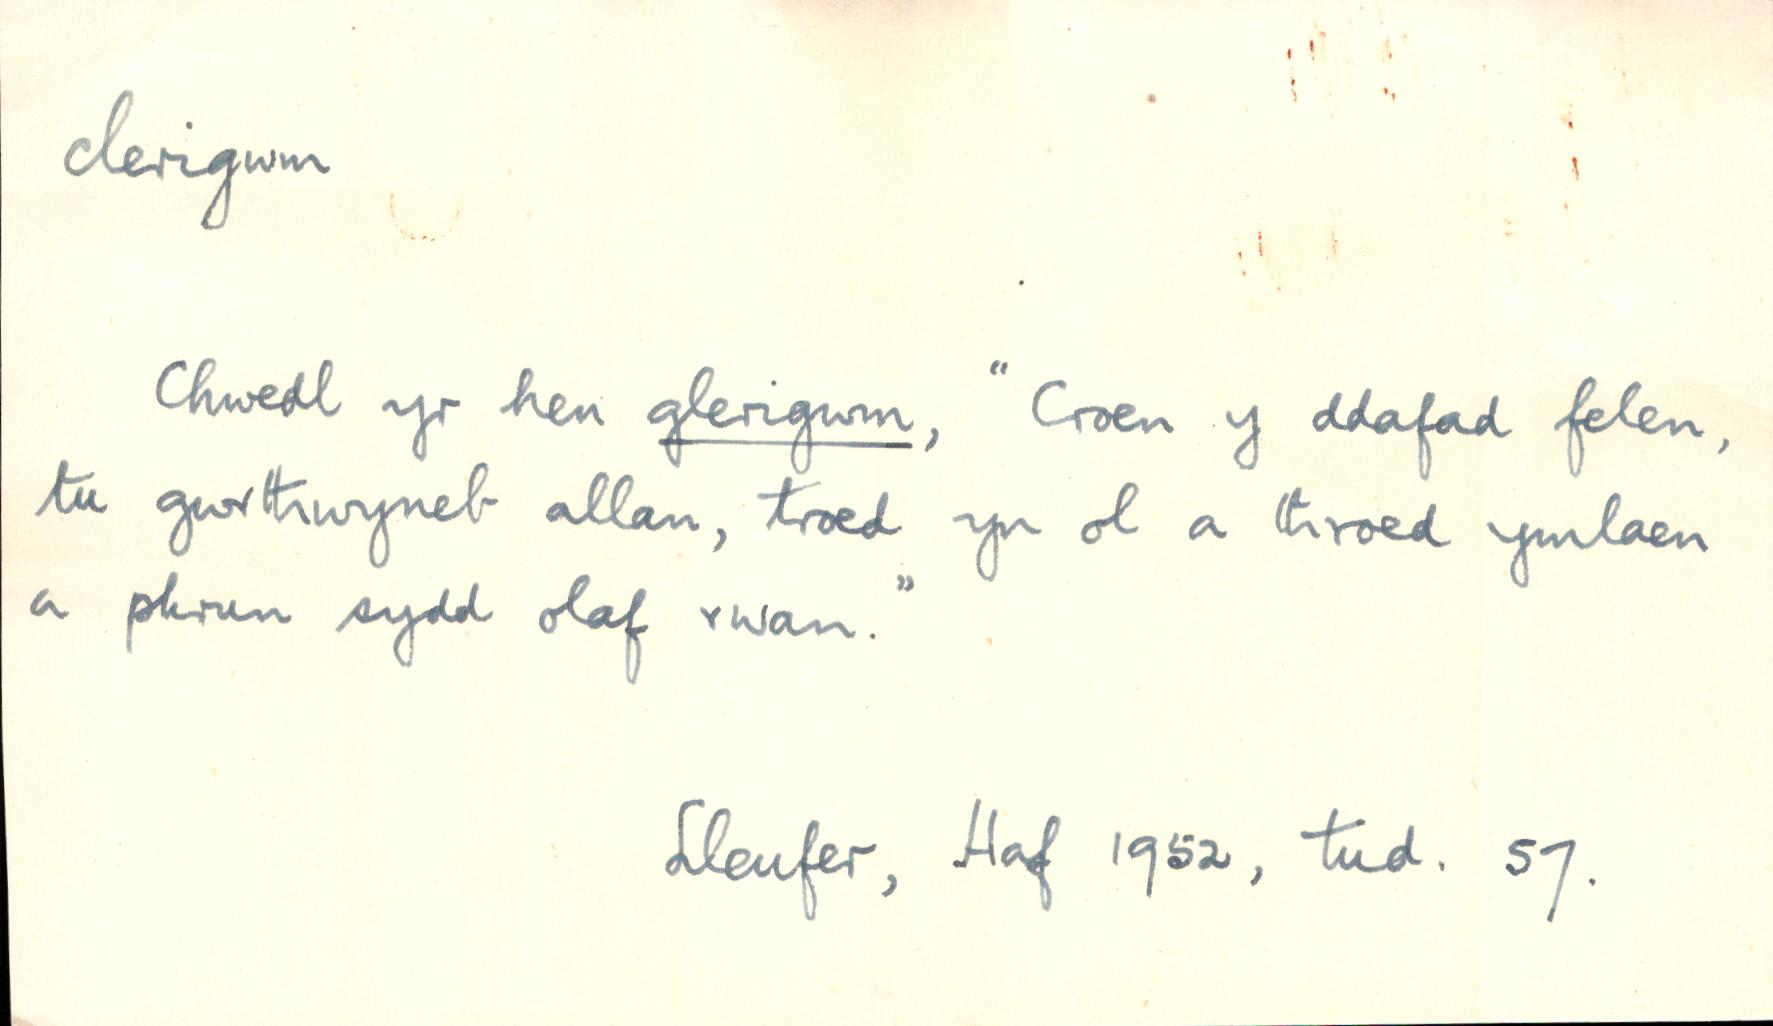 clerigwm
Chwedl yr hen glerigwm, "Croen y ddafad felen,
tu gwrthwyneb allan, troed yn ol a throed ymlaen
a phrun sydd olaf rwan."
Lleufer, Haf 1952, tud. 57.